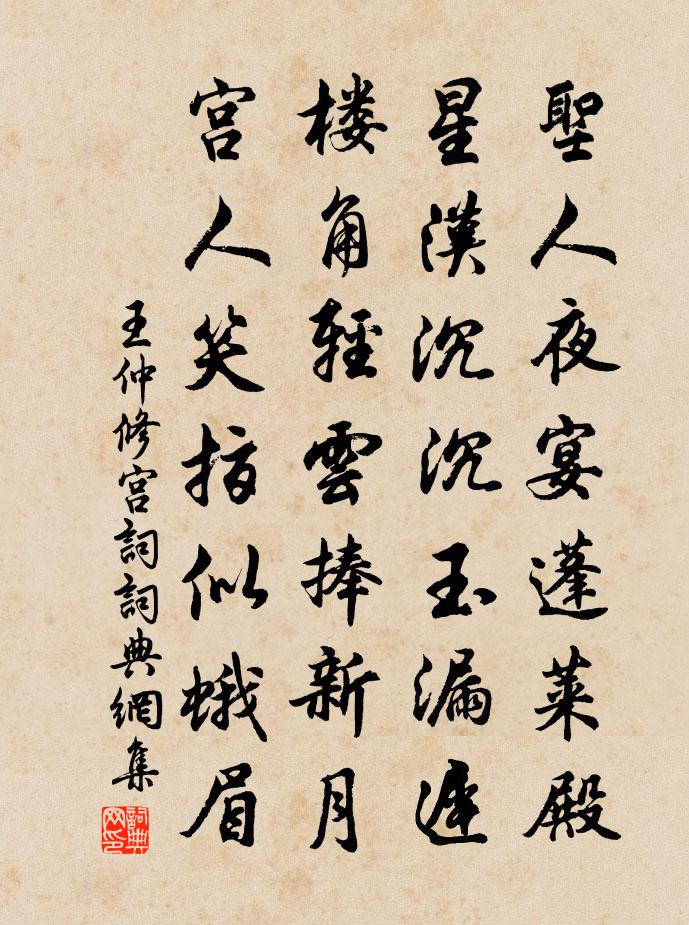 聖人夜宴蓬萊殿
星漢沉沉玉漏遲
楼角輕雲捧新月
宫人笑指似蛾眉
王仲修宫詞詞典網集
詞典网印